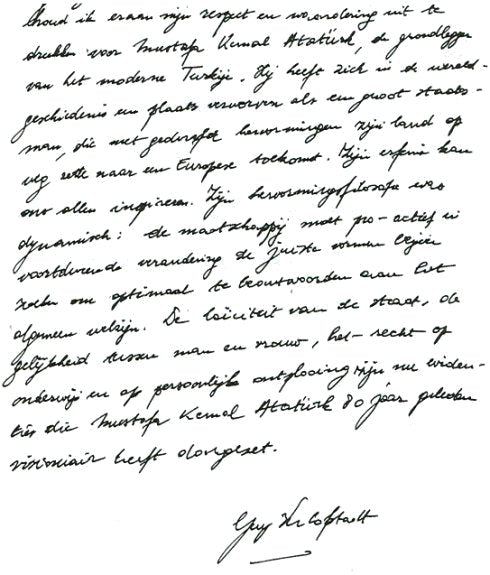 houd ik eraan mijn respect en waardering uit te
drukken voor Mustafa Kemal Atatürk, de grondlegger
van het moderne Turkije. Hij heeft zich in de wereld-
geschiedenis een plaats verworven als een groot staats-
man, die met gedurfde hervormingen zijn land op
weg zette naar een Europese toekomst. Zijn erfenis kan
ons allen inspireren. Zijn hervormingsfilosofie was
dynamisch: de maatschappij moet pro-actief in
voortdurende verandering de juiste vormen
zoeken om optimaal te beantwoorden aan het
algemeen welzijn. De laïciteit van de staat, de
gelijkheid tussen man en vrouw, het recht op
onderwijs en op persoonlijke ontplooiing zijn nu eviden-
ties die Mustafa Kemal Atatürk 80 jaar geleden
visionair heeft doorgezet.
Guy Verhofstadt